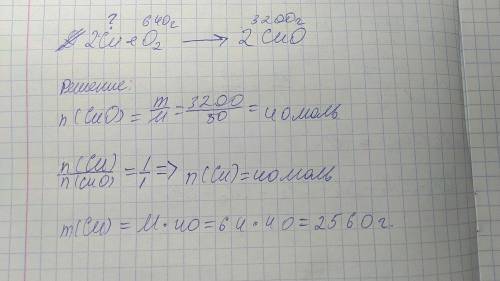 ? 640г 3200г
2Cu + O₂ → 2CuO
Решение:
n(CuO) = m/M = 3200/80 = 40моль
n(Cu)/n(CuO) = 1/1 => n(Cu) = 40моль
m(Cu) = M · 40 = 64 · 40 = 2560г.